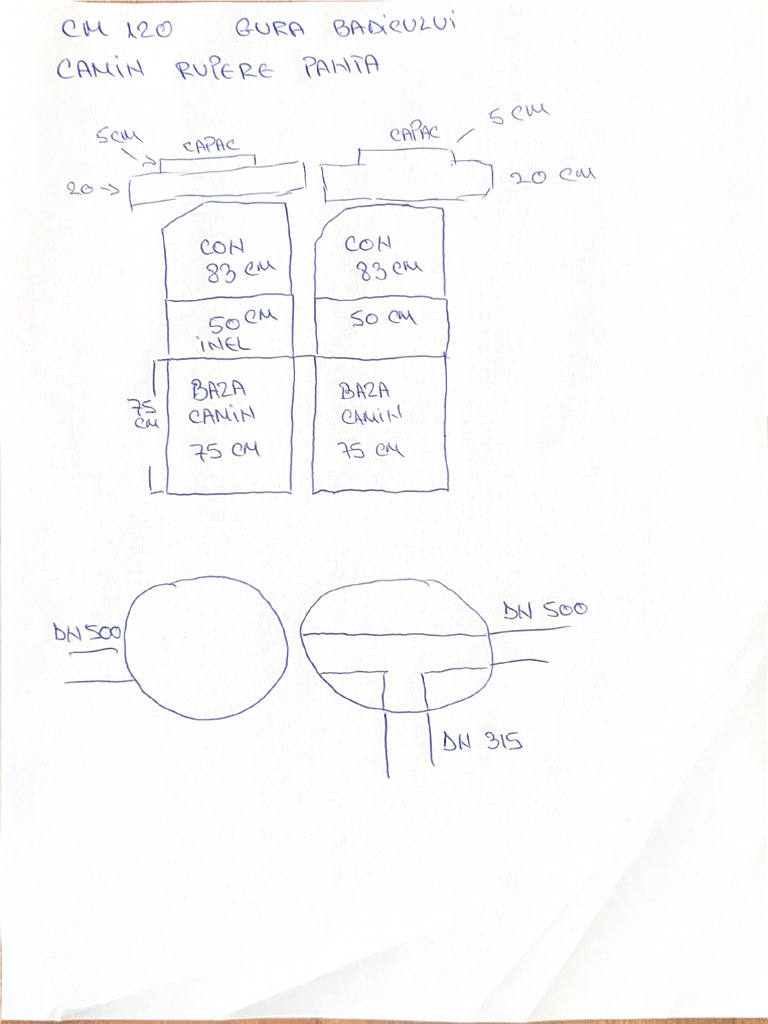 CM 120 GURA BADICULUI
CAMIN RUPERE PANTA
5CM
CAPAC
20
CAPAC
5 CM
20 CM
CON
83 CM
CON
83 CM
50 CM
INEL
50 CM
75
CM
BAZA
CAMIN
75 CM
BAZA
CAMIN
75 CM
DN 500
DN 500
DN 315